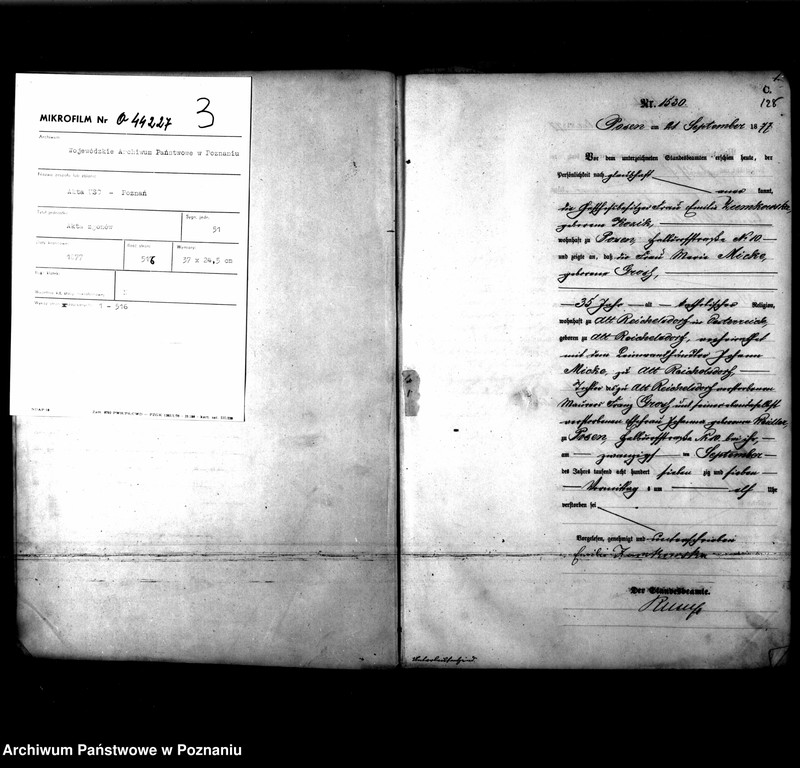 MIKROFILM Nr O 44227
3
Archiwum
Wojewódzkie Archiwum Państwowe w Poznaniu
Akta USC - Poznań
Sygn. jedn.
Akta zgonów
51
1877
516
37 x 24,5 cm
1
1 - 516
C.
128
Nr. 1530
Posen am 21 September 1877
Vor dem unterzeichneten Standesbeamten erschien heute, der
Persönlichkeit nach
kannt,
die Frau Emilie
geborene
wohnhaft zu Posen, Halldorfstraße No 10
und zeigte an, daß die Frau Maria Micke,
geborene Grosch,
35 Jahr alt katholischer Religion,
wohnhaft zu Alt Reichelsdorf in Oesterreich,
geboren zu Alt Reichelsdorf, verheirathet
mit dem Leinwandhändler Johann
Micke, zu Alt Reichelsdorf
Tochter des zu Alt Reichelsdorf verstorbenen
Maurers Franz Grosch und seiner ebendaselbst
verstorbenen Ehefrau Johanna geborenen
zu Posen, Halldorfstraße No 10 bei ihr,
am zwanzigsten September
des Jahres tausend acht hundert siebenzig und sieben
Vormittags um elf Uhr
verstorben sei
Vorgelesen, genehmigt und unterschrieben
Emilie
Der Standesbeamte.
Archiwum Państwowe w Poznaniu